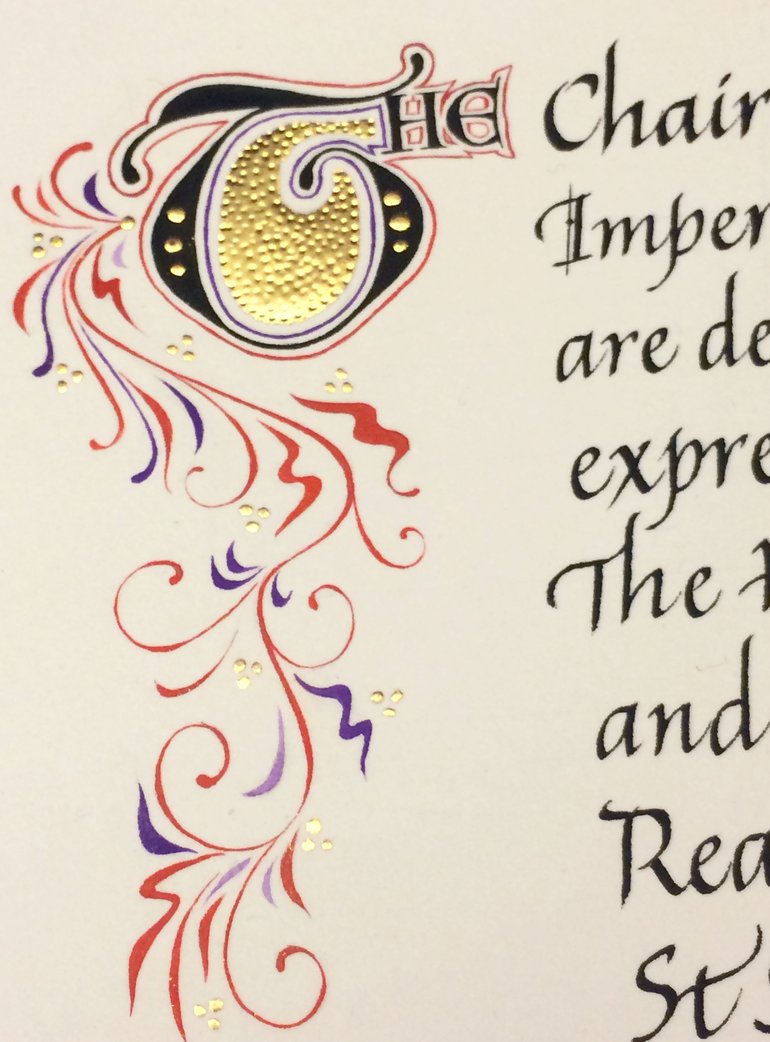 THE Chair
Imper
are de
expre
The
and
Rea
St